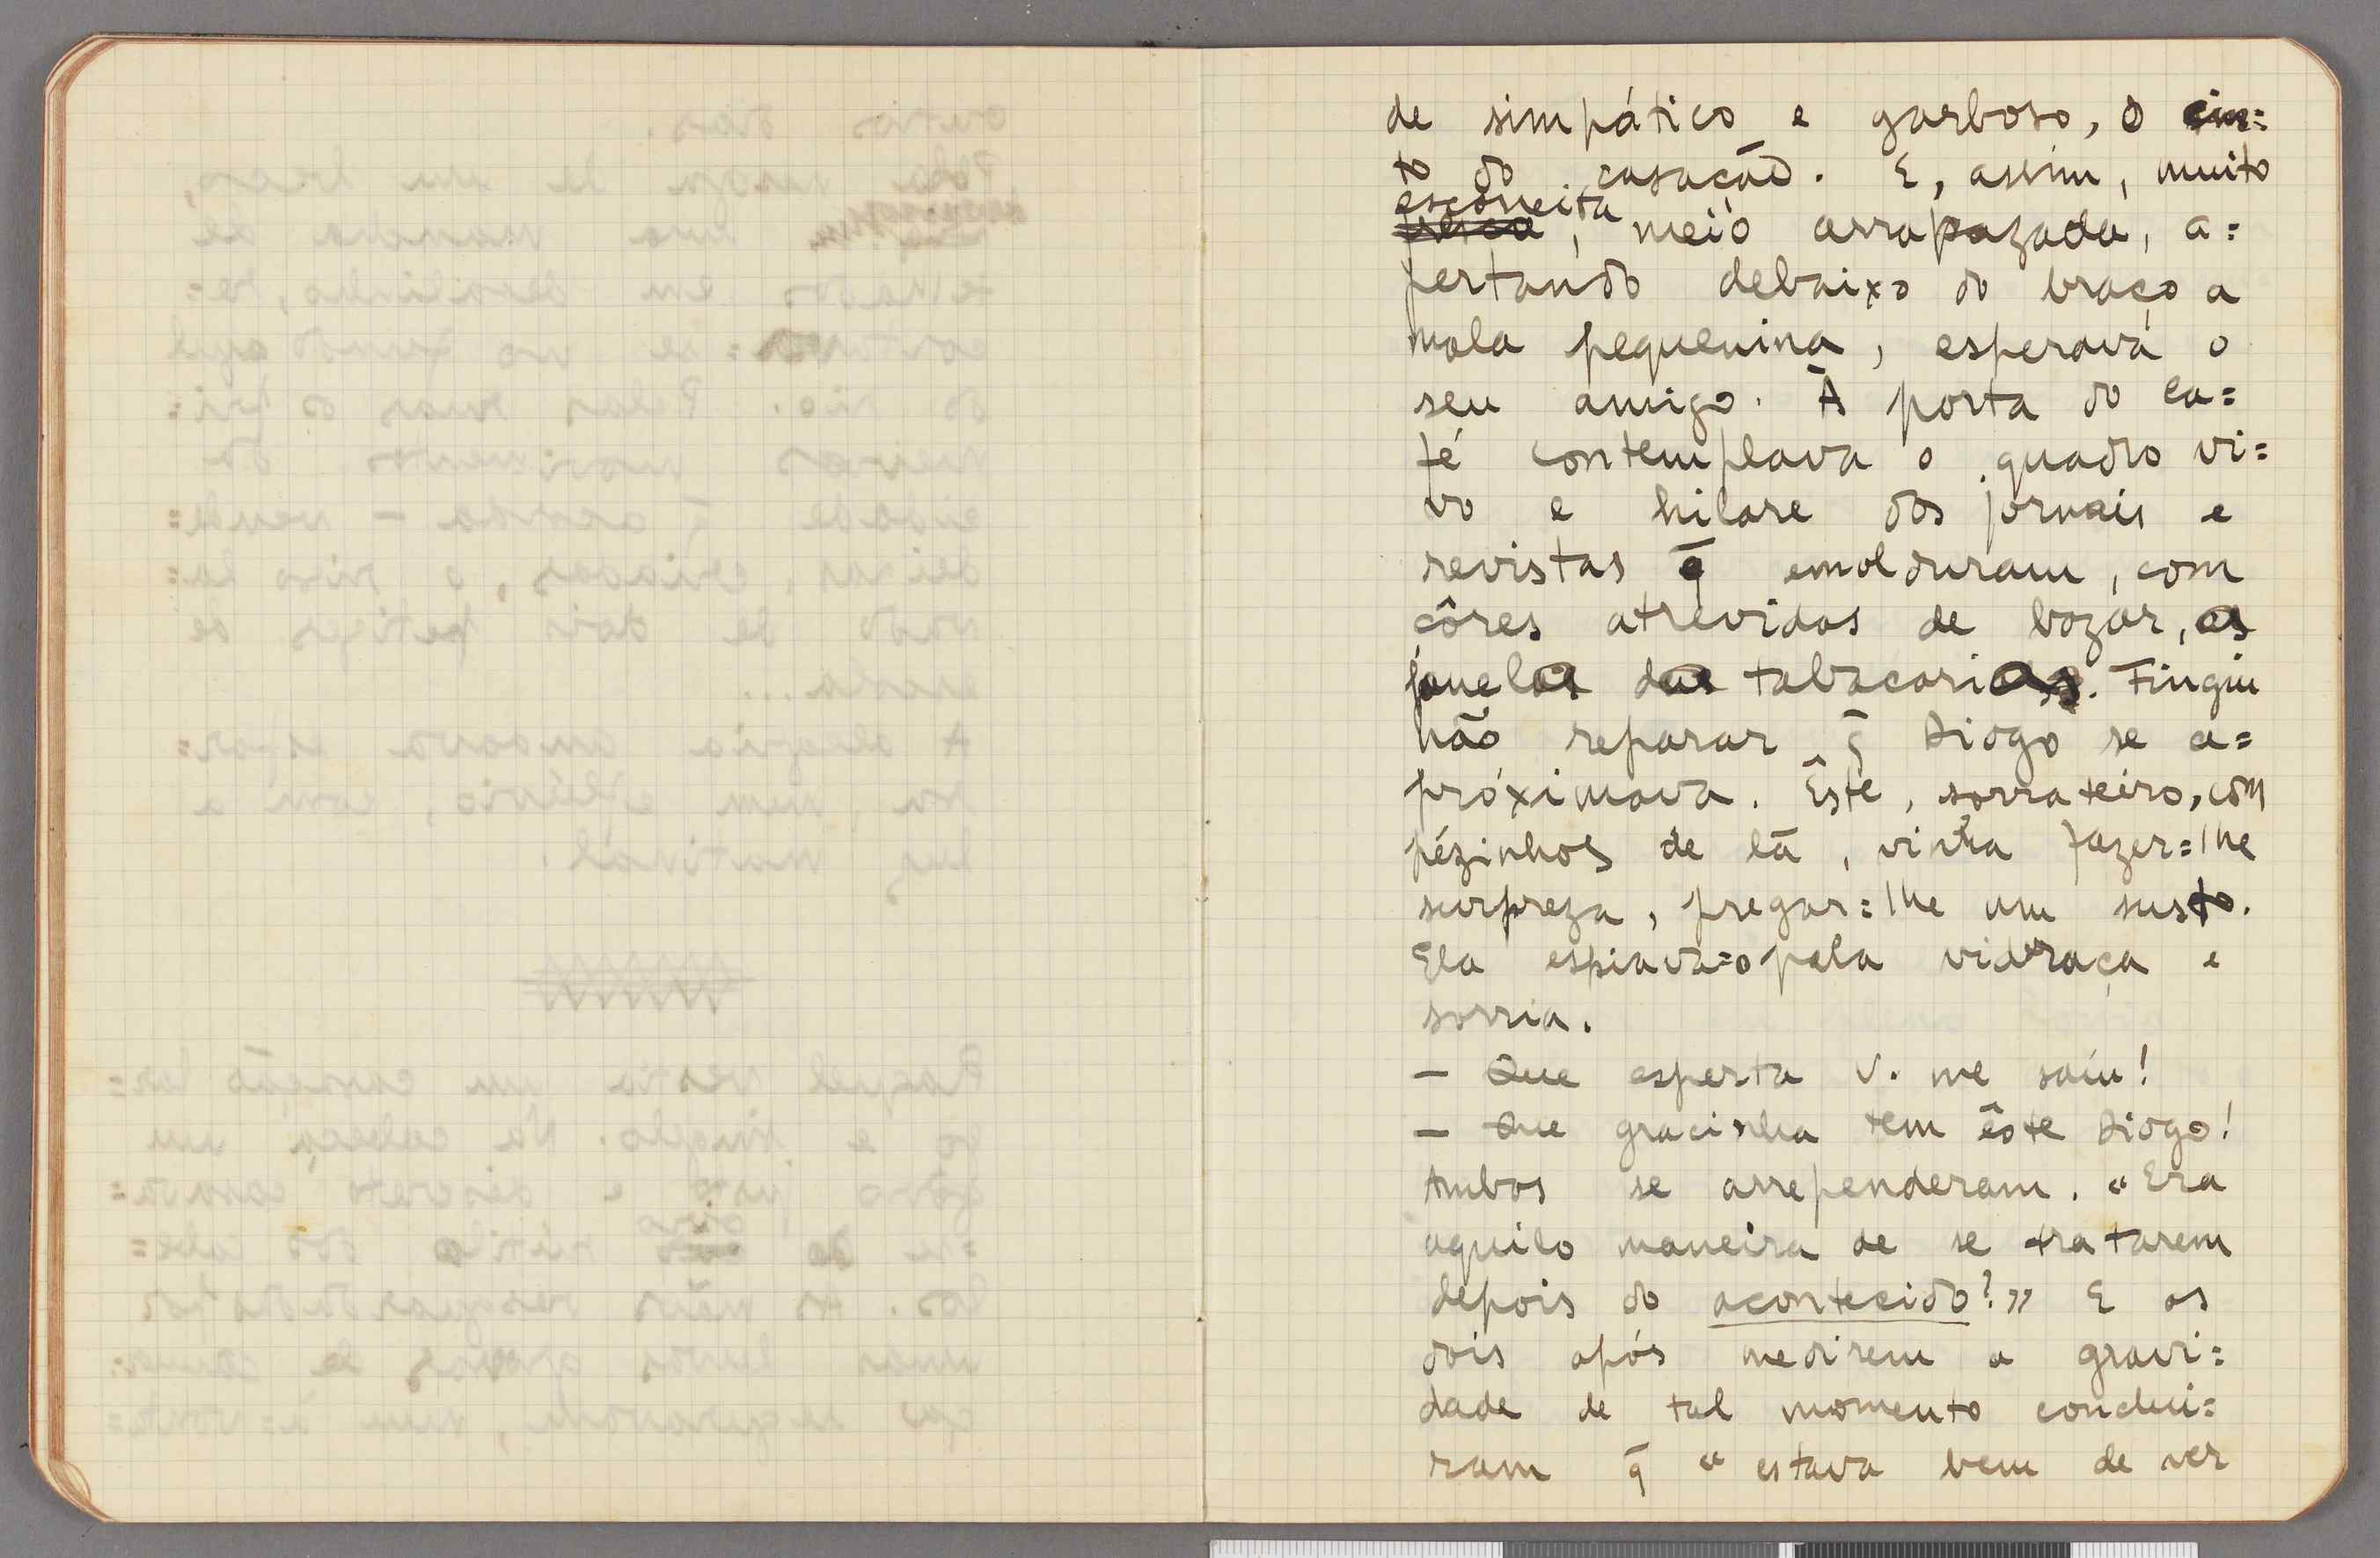 de simpático e garboso, o cin=
to do casacão. E, assim, muito
escorreita
fresca, meio arrapazada, a=
pertando debaixo do braço a
mala pequenina, esperava o
seu amigo. À porta do ca=
fé contemplava o quadro vi=
vo e hilare dos jornais e
revistas q̄ emolduram, com
côres atrevidas de bazar, as
janelas das tabacarias. Fingiu
não reparar q̄ Diogo se a=
próximava. Êste, sorrateiro, com
pézinhos de lã, vinha fazer=lhe
surpreza, pregar=lhe um susto.
Ela espiava=o pela vidraça e
sorria.
– Que esperta V. me saíu!
– Que gracinha tem êste Diogo!
Ambos se arrependeram. "Era
aquilo maneira de se tratarem
depois do acontecido?" E os
dois após medirem a gravi=
dade de tal momento conclui=
ram q̄ "estava bem de ver